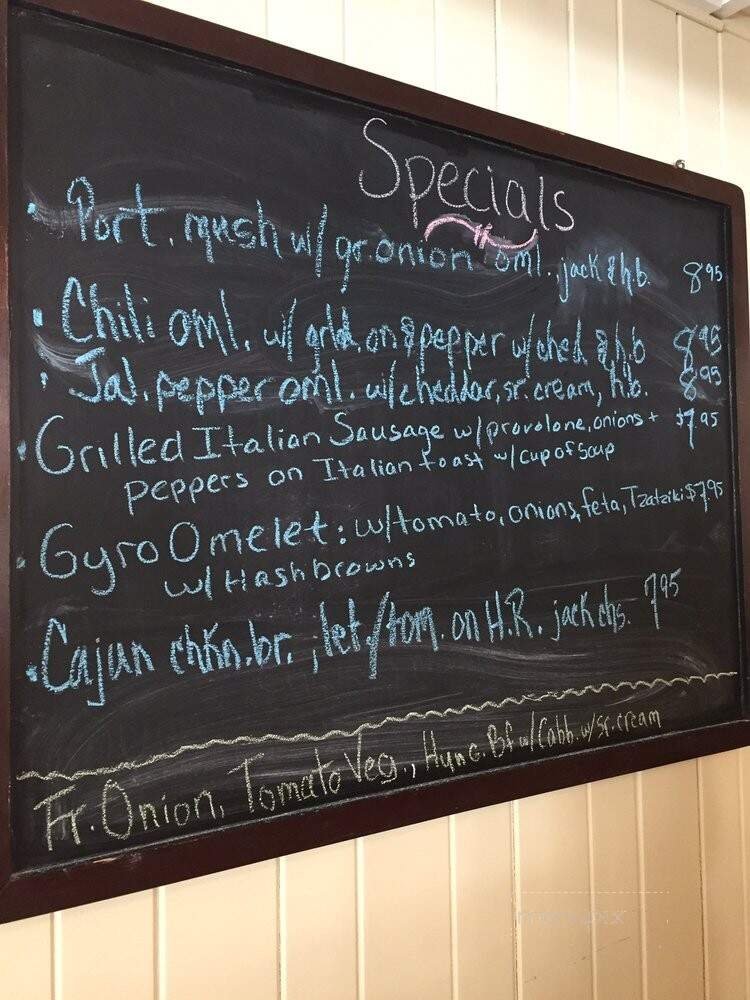 Specials
• Port. mush w/ gr. onion oml. jack & h.b. 8.95
• Chili oml. w/ grld. on & pepper w/ ched. & h.b 8.95
• Jal. pepper oml. w/ cheddar, sr. cream, h.b. 8.95
• Grilled Italian Sausage w/ provolone, onions + $7.95
peppers on Italian toast w/ cup of soup
• Gyro Omelet: w/ tomato, onions, feta, Tzatziki $7.95
w/ Hashbrowns
• Cajun chkn. br., let/tom. on H.R. jack chs. 7.95
Fr. Onion, Tomato Veg., Hung. Bf w/ Cabb. w/ sr. cream